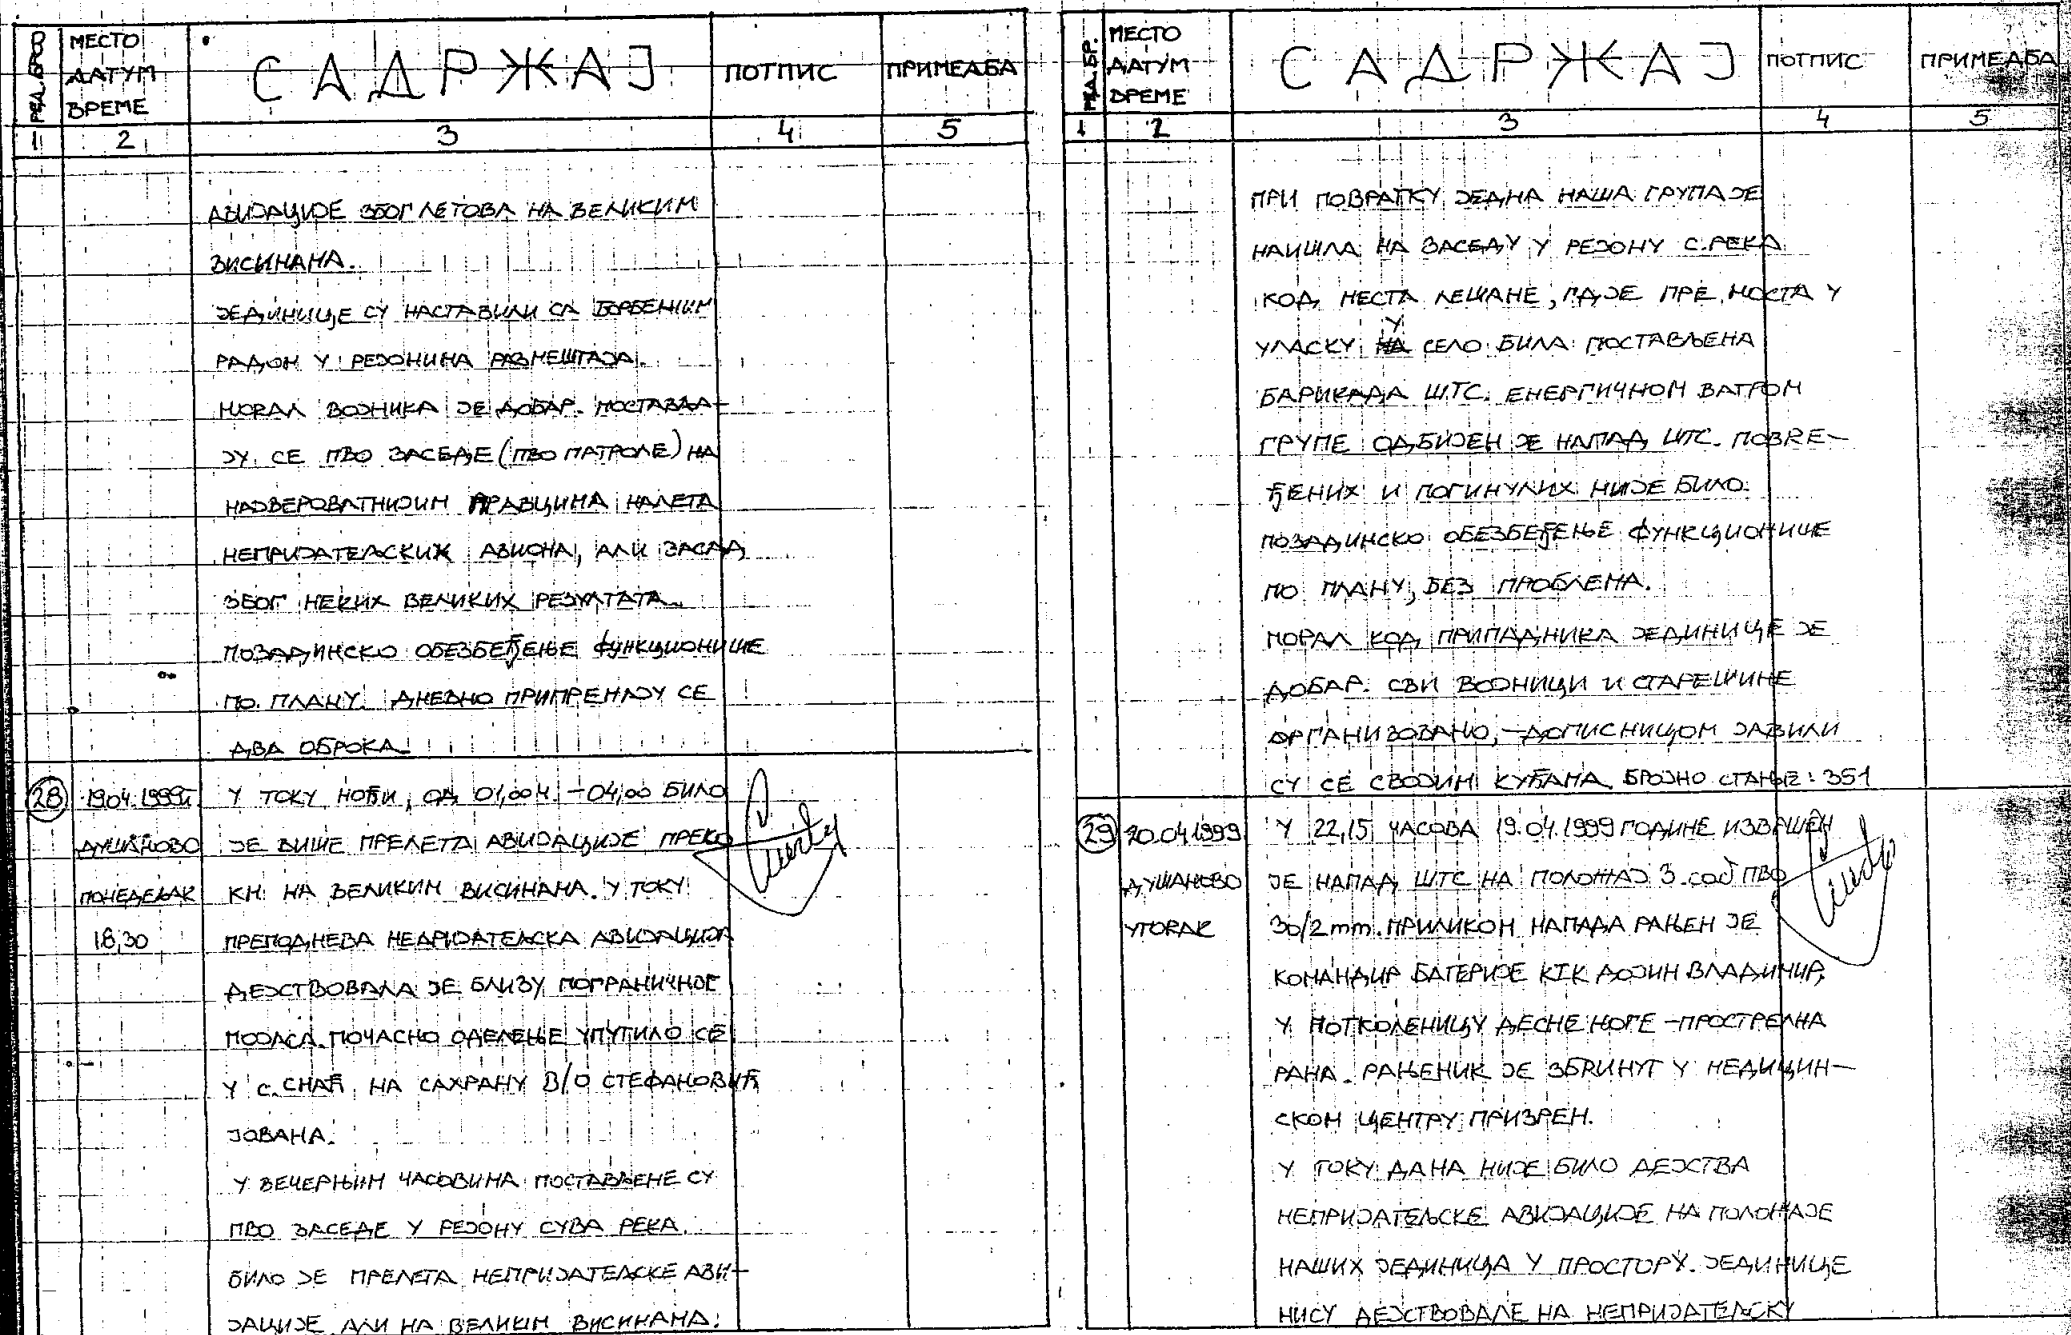 РЕД. БРОЈ
МЕСТО
ДАТУМ
ВРЕМЕ
САДРЖАЈ
ПОТПИС
ПРИМЕДБА
1
2
3
4
5
АВИЈАЦИЈЕ ЗБОГ ЛЕТОВА НА ВЕЛИКИМ
ВИСИНАМА.
ЈЕДИНИЦЕ СУ НАСТАВИЛИ СА БОРБЕНИМ
РАДОМ У РЕЈОНИМА РАЗМЕШТАЈА.
МОРАЛ ВОЈНИКА ЈЕ ДОБАР. ПОСТАВЉА-
ЈУ СЕ ПВО ЗАСЕДЕ (ПВО ПАТРОЛЕ) НА
НАЈВЕРОВАТНИЈИМ ПРАВЦИМА НАЛЕТА
НЕПРИЈАТЕЉСКИХ АВИОНА, АЛИ ЗАСАД
ЗБОГ НЕКИХ ВЕЛИКИХ РЕЗУЛТАТА.
ПОЗАДИНСКО ОБЕЗБЕЂЕЊЕ ФУНКЦИОНИШЕ
ПО ПЛАНУ. ДНЕВНО ПРИПРЕМАЈУ СЕ
ДВА ОБРОКА.
28 19.04.1999г. У ТОКУ НОЋИ, ОД 01,00Ч. -04,00 БИЛО
ДУШАНОВО ЈЕ ВИШЕ ПРЕЛЕТА АВИЈАЦИЈЕ ПРЕКО
ПОНЕДЕЉАК КМ НА ВЕЛИКИМ ВИСИНАМА. У ТОКУ
18,30 ПРЕПОДНЕВА НЕПРИЈАТЕЉСКА АВИЈАЦИЈА
ДЕЈСТВОВАЛА ЈЕ БЛИЗУ ПОГРАНИЧНОГ
ПОЈАСА. ПОЧАСНО ОДЕЛЕЊЕ УПУТИЛО СЕ
У С. СНАГ НА САХРАНУ В/О СТЕФАНОВИЋ
ЈОВАНА.
У ВЕЧЕРЊИМ ЧАСОВИМА ПОСТАВЉЕНЕ СУ
ПВО ЗАСЕДЕ У РЕЈОНУ СУВА РЕКА.
БИЛО ЈЕ ПРЕЛЕТА НЕПРИЈАТЕЉСКЕ АВИ-
ЈАЦИЈЕ АЛИ НА ВЕЛИКИМ ВИСИНАМА.
РЕД. БР.
МЕСТО
ДАТУМ
ВРЕМЕ
САДРЖАЈ
ПОТПИС
ПРИМЕДБА
1
2
3
4
5
ПРИ ПОВРАТКУ ЈЕДНА НАША ГРУПА ЈЕ
НАИШЛА НА ЗАСЕДУ У РЕЈОНУ С. РЕКА
КОД МЕСТА ЛЕШАНЕ, ГДЈЕ ПРЕ МОСТА У
УЛАСКУ У СЕЛО БИЛА ПОСТАВЉЕНА
БАРИКАДА ШТС. ЕНЕРГИЧНОМ ВАТРОМ
ГРУПЕ ОДБИЈЕН ЈЕ НАПАД ШТС. ПОВРЕ-
ЂЕНИХ И ПОГИНУЛИХ НИЈЕ БИЛО.
ПОЗАДИНСКО ОБЕЗБЕЂЕЊЕ ФУНКЦИОНИШЕ
ПО ПЛАНУ, БЕЗ ПРОБЛЕМА.
МОРАЛ КОД ПРИПАДНИКА ЈЕДИНИЦЕ ЈЕ
ДОБАР. СВИ ВОЈНИЦИ И СТАРЕШИНЕ
ОРГАНИЗОВАНО, -ДОПИСНИЦОМ ЈАВИЛИ
СУ СЕ СВОЈИМ КУЋАМА. БРОЈНО СТАЊЕ: 351
29 20.04.1999 У 22,15 ЧАСОВА 19.04.1999 ГОДИНЕ ИЗВРШЕН
ДУШАНОВО ЈЕ НАПАД ШТС НА ПОЛОЖАЈ 3. сад ПВО
УТОРАК 30/2 mm. ПРИЛИКОМ НАПАДА РАЊЕН ЈЕ
КОМАНДИР БАТЕРИЈЕ КЈК ДОЈИН ВЛАДИМИР,
У ПОТКОЛЕНИЦУ ДЕСНЕ НОГЕ -ПРОСТРЕЛНА
РАНА. РАЊЕНИК ЈЕ ЗБРИНУТ У МЕДИЦИН-
СКОМ ЦЕНТРУ ПРИЗРЕН.
У ТОКУ ДАНА НИЈЕ БИЛО ДЕЈСТВА
НЕПРИЈАТЕЉСКЕ АВИЈАЦИЈЕ НА ПОЛОЖАЈЕ
НАШИХ ЈЕДИНИЦА У ПРОСТОРУ. ЈЕДИНИЦЕ
НИСУ ДЕЈСТВОВАЛЕ НА НЕПРИЈАТЕЉСКУ